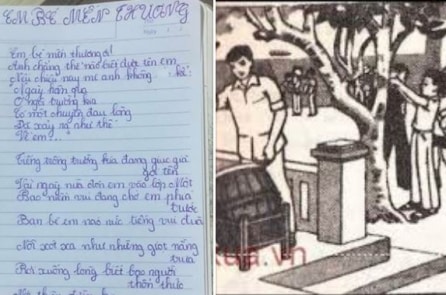 EM BÉ MẾN THƯƠNG
Em bé mến thương ơi!
Anh chẳng thể nào biết được tên em
Nếu chuyện này mẹ anh không kể:
Ngày hôm qua
Ở ngôi trường kia
Có một chuyện đau lòng
Đã xảy ra như thế
Về em...
Tiếng trống trường kia đang giục giã
gọi tên
Tại ngày nữa đón em vào lớp Một
Bao niềm vui đang chờ em phía
trước
Bạn bè em náo nức tiếng vui đùa
Nỗi xót xa như những giọt nắng
trưa
Rơi xuống lòng biết bao người
thổn thức
.vn